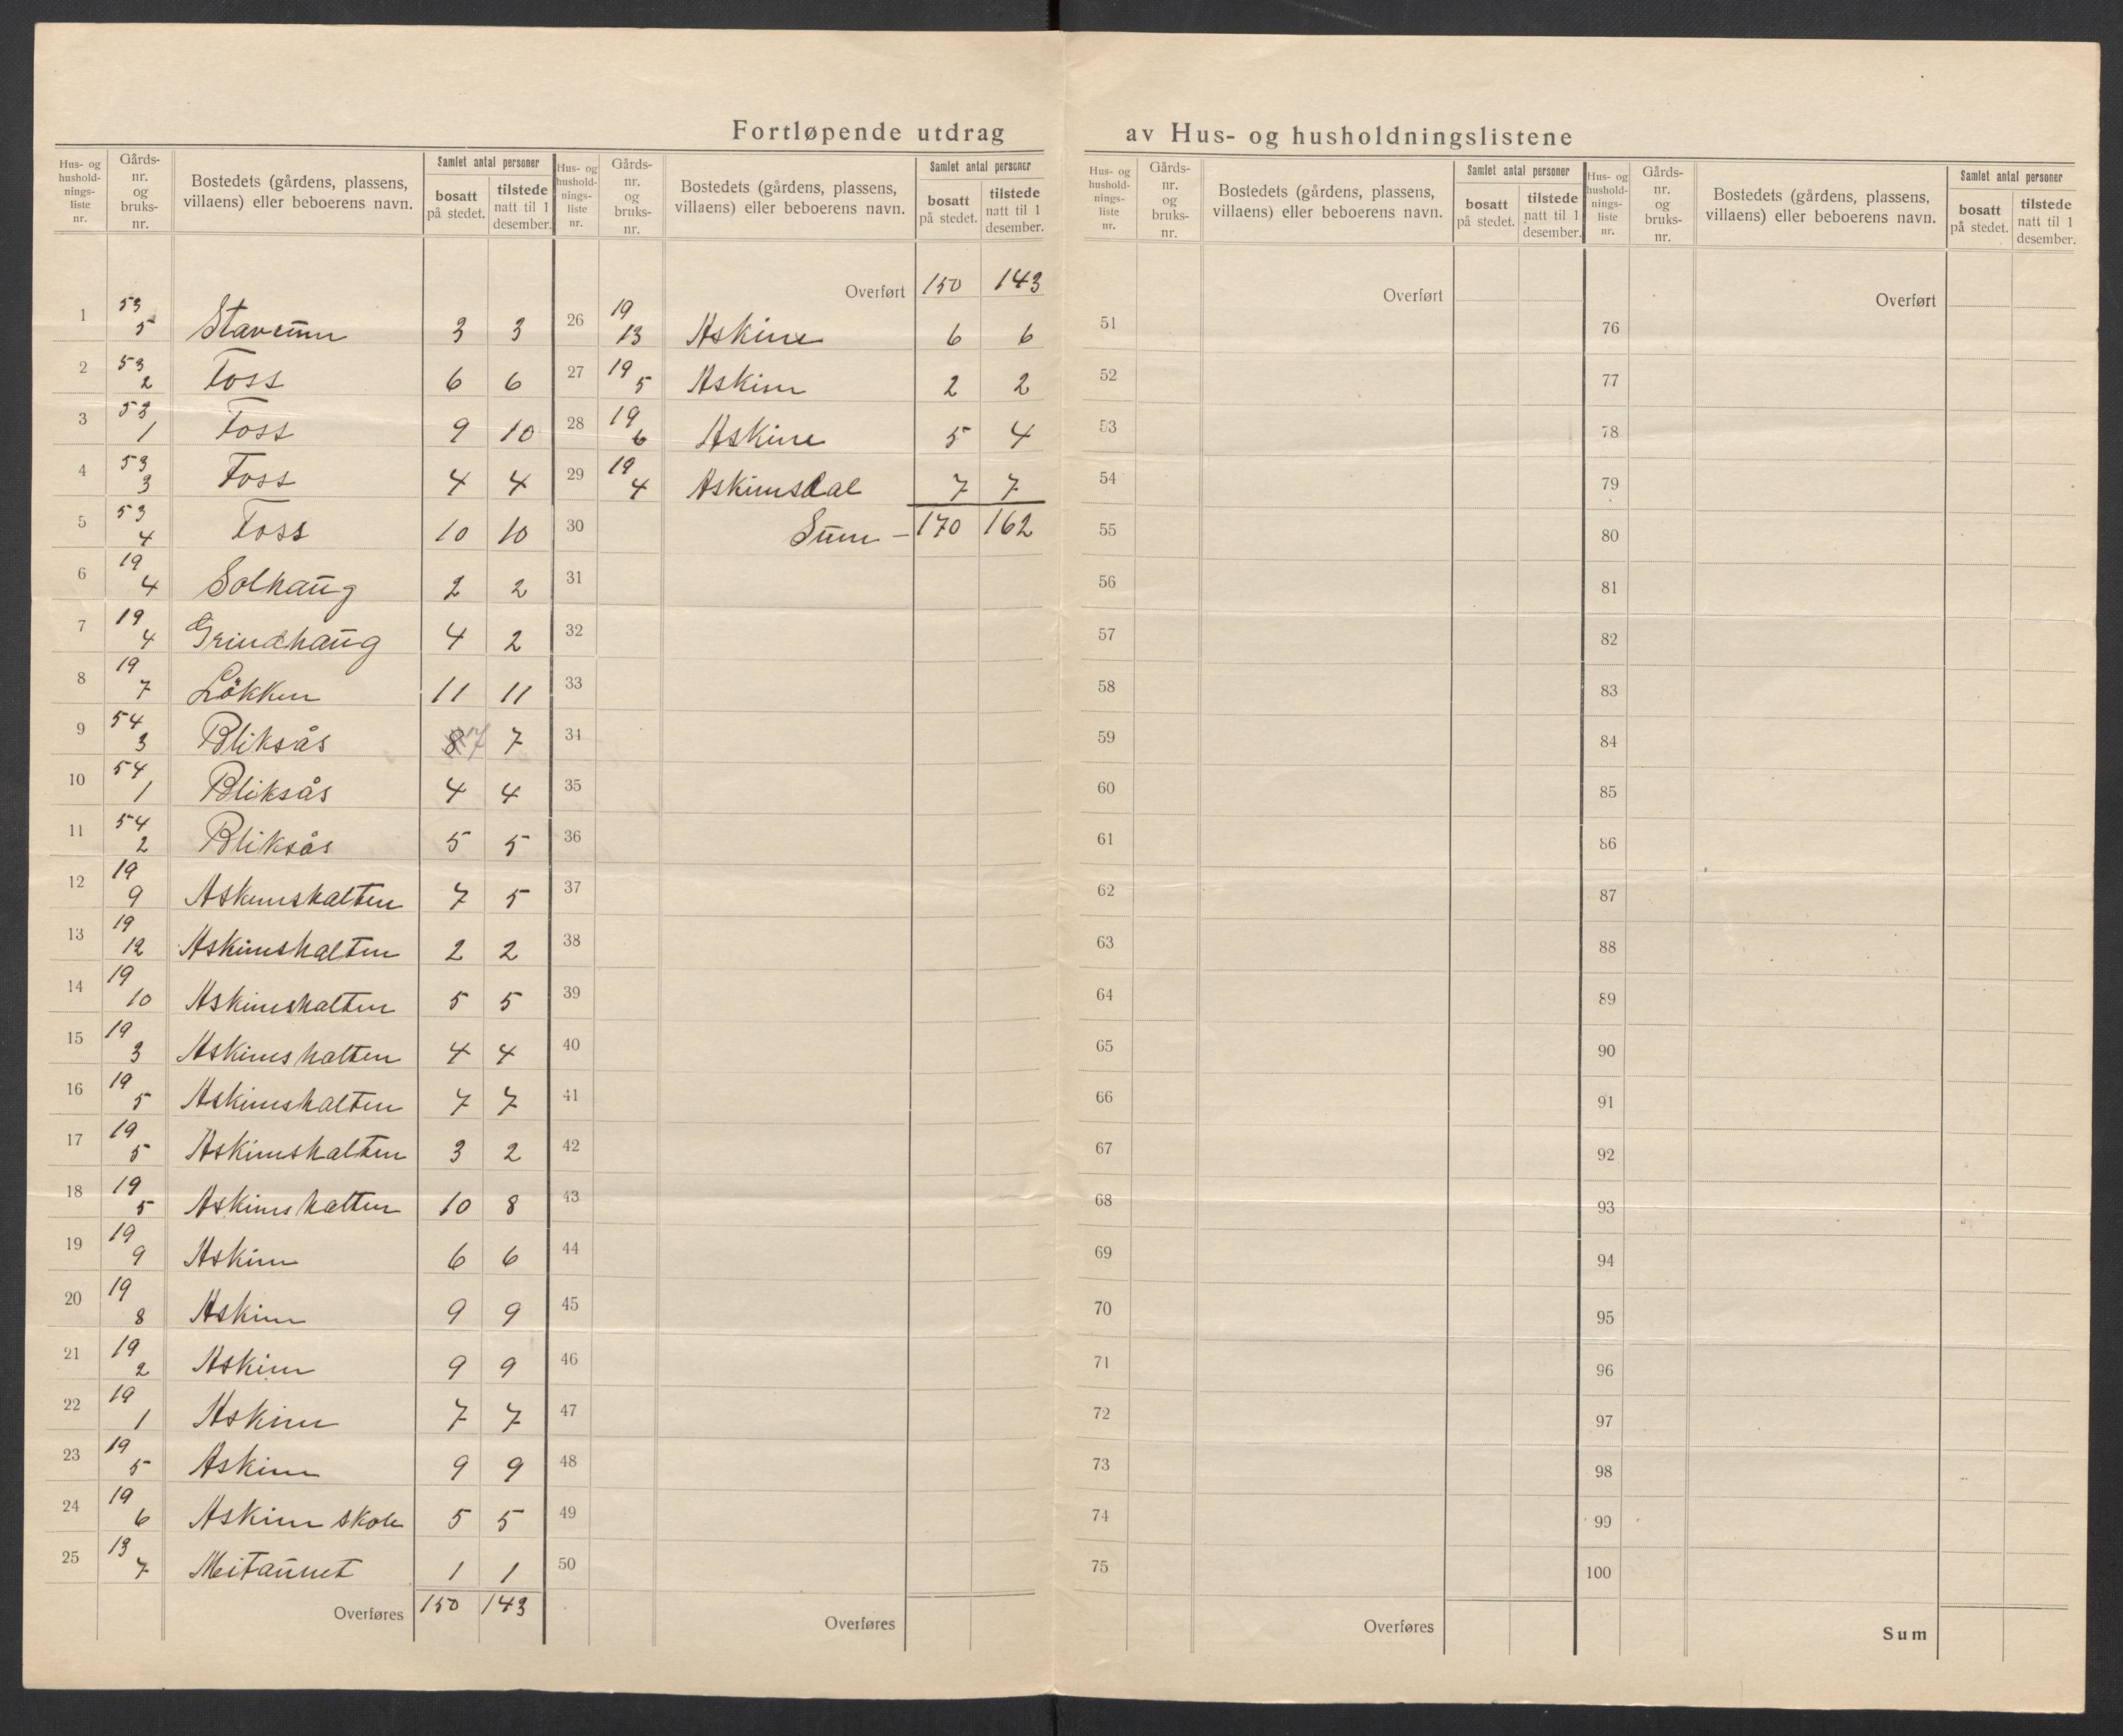 Fortløpende utdrag av Hus- og husholdningslistene
Hus- og hushold-nings-liste nr. | Gårds-nr. og bruks-nr. | Bostedets (gårdens, plassens, villaens) eller beboerens navn. | Samlet antal personer | bosatt på stedet. | tilstede natt til 1 desember.
1 | 53 5 | Staveum | 3 | 3
2 | 53 2 | Foss | 6 | 6
3 | 53 1 | Foss | 9 | 10
4 | 53 3 | Foss | 4 | 4
5 | 53 4 | Foss | 10 | 10
6 | 19 4 | Solhaug | 2 | 2
7 | 19 4 | Grindhaug | 4 | 2
8 | 19 7 | Lökken | 11 | 11
9 | 54 3 | Bliksås | 8 7 | 7
10 | 54 1 | Bliksås | 4 | 4
11 | 54 2 | Bliksås | 5 | 5
12 | 19 9 | Askimshalten | 7 | 5
13 | 19 12 | Askimshalten | 2 | 2
14 | 19 10 | Askimshalten | 5 | 5
15 | 19 3 | Askimshalten | 4 | 4
16 | 19 5 | Askimshalten | 7 | 7
17 | 19 5 | Askimshalten | 3 | 2
18 | 19 5 | Askimshalten | 10 | 8
19 | 19 9 | Askim | 6 | 6
20 | 19 8 | Askim | 9 | 9
21 | 19 2 | Askim | 9 | 9
22 | 19 1 | Askim | 7 | 7
23 | 19 5 | Askim | 9 | 9
24 | 19 6 | Askim skole | 5 | 5
25 | 13 7 | Meitaunet | 1 | 1
Overføres | 150 | 143
Hus- og hushold-nings-liste nr. | Gårds-nr. og bruks-nr. | Bostedets (gårdens, plassens, villaens) eller beboerens navn. | Samlet antal personer | bosatt på stedet. | tilstede natt til 1 desember.
Overført | 150 | 143
26 | 19 13 | Askim | 6 | 6
27 | 19 5 | Askim | 2 | 2
28 | 19 6 | Askim | 5 | 4
29 | 19 4 | Askimsdal | 7 | 7
30 | Sum – | 170 | 162
31
32
33
34
35
36
37
38
39
40
41
42
43
44
45
46
47
48
49
50
Overføres
Hus- og hushold-nings-liste nr. | Gårds-nr. og bruks-nr. | Bostedets (gårdens, plassens, villaens) eller beboerens navn. | Samlet antal personer | bosatt på stedet. | tilstede natt til 1 desember.
Overført
51
52
53
54
55
56
57
58
59
60
61
62
63
64
65
66
67
68
69
70
71
72
73
74
75
Overføres
Hus- og hushold-nings-liste nr. | Gårds-nr. og bruks-nr. | Bostedets (gårdens, plassens, villaens) eller beboerens navn. | Samlet antal personer | bosatt på stedet. | tilstede natt til 1 desember.
Overført
76
77
78
79
80
81
82
83
84
85
86
87
88
89
90
91
92
93
94
95
96
97
98
99
100
Sum